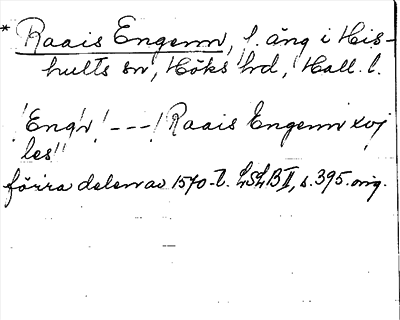 * Raais Engenn, f. äng i His-
hults sn, Höks hd, Hall. l.
"Engr --- Raais Engenn xvj
les"
förra delen av 1570-t. LSLB II, s. 395. orig.